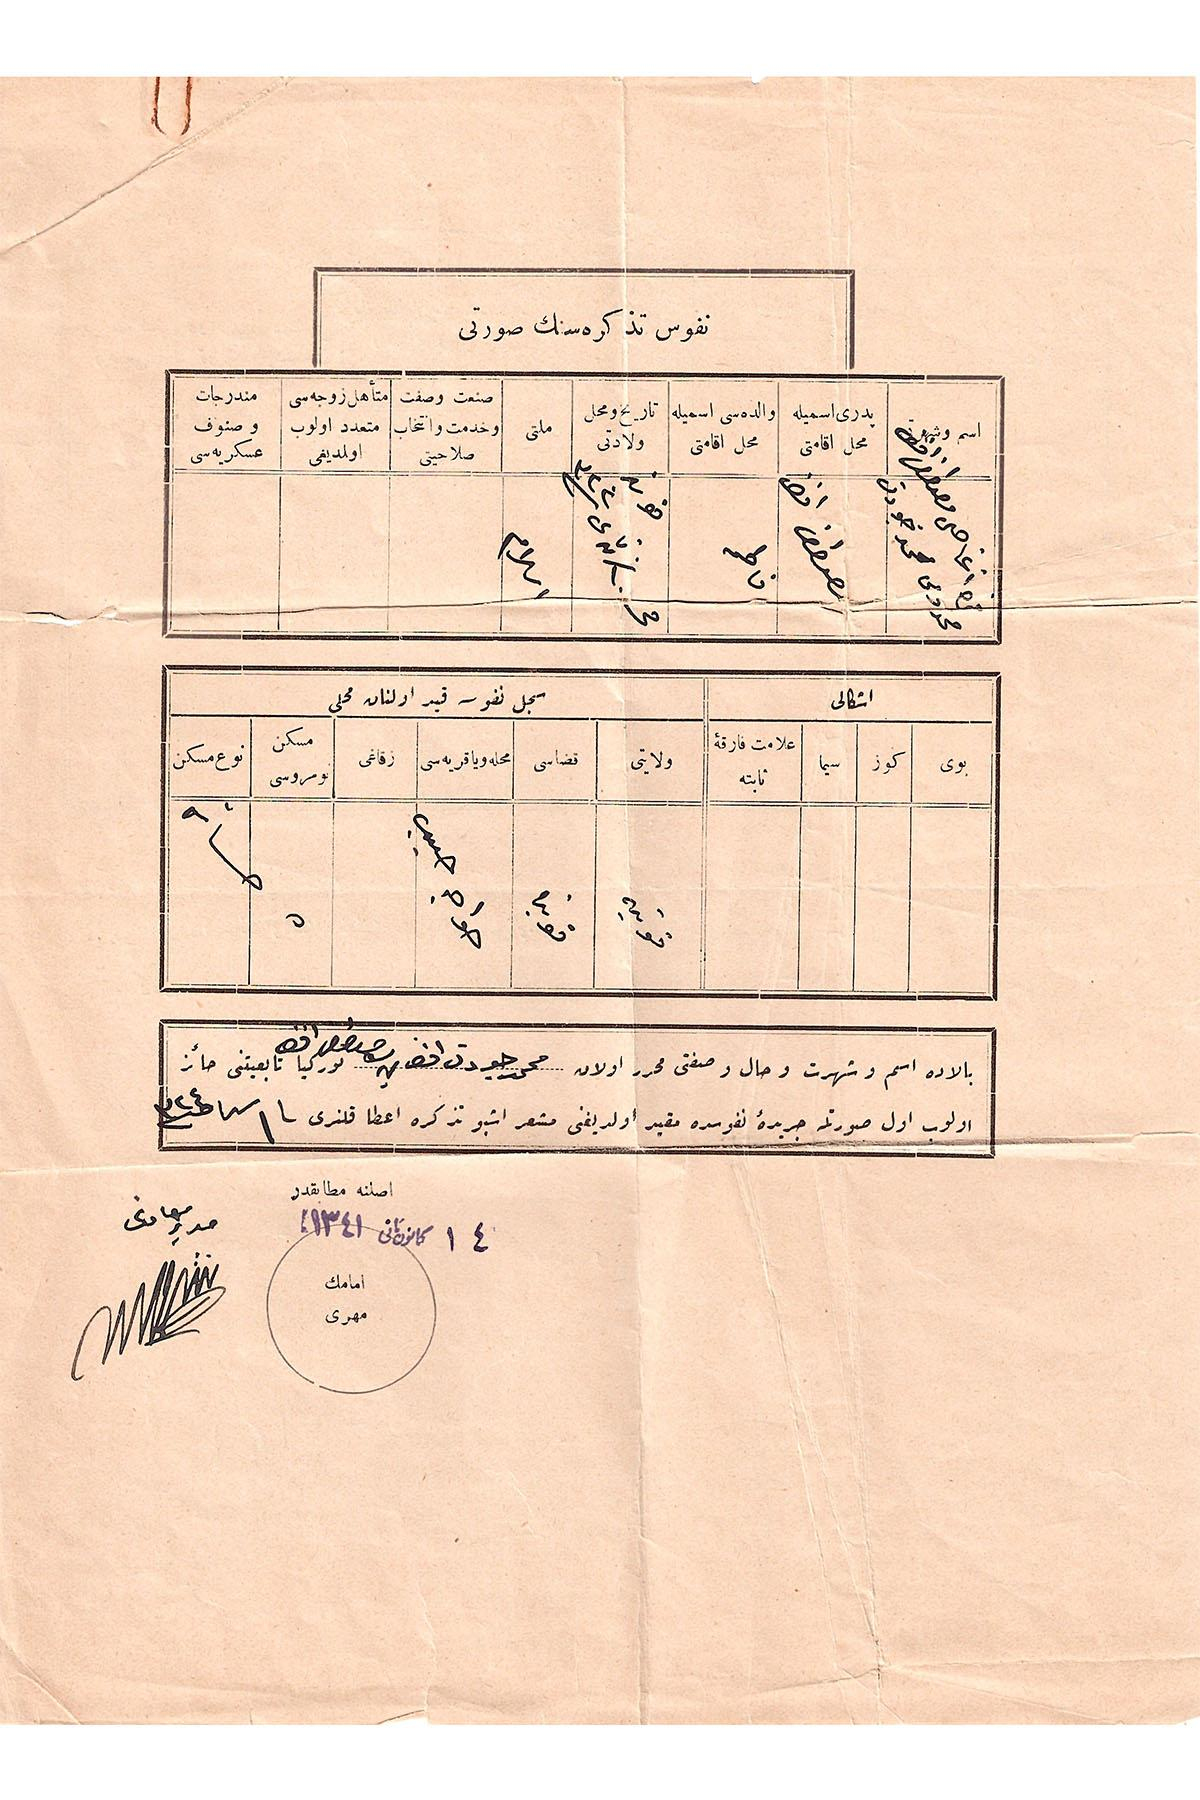 نفوس تذكره‌سنك صورتی
اسم و شهرتی
پدری اسمیله محل اقامتی
والده‌سی اسمیله محل اقامتی
تاریخ و محل ولادتی
ملتی
صنعت وصفت وخدمت وانتخاب صلاحیتی
متأهل زوجه‌سی متعدد اولوب اولدیغی
مندرجات و صنوف عسکریه‌سی
مصطفی افندی
فاطمه
قونیه
اسلام
اشکالی
سجل نفوسه قید اولنان محلی
بوی
كوز
سیما
علامت فارقهٔ ثابته
ولایتی
قضاسی
محله ویا قریه‌سی
زقاغی
مسكن نومروسی
نوع مسكن
قونیه
قونیه
٥
خانه
بالاده اسم و شهرت و حال و صفتی محرر اولان محمد جودت افندی بن مصطفی افندی توركیا تابعیتنی حائز
اولوب اول صورتله جریدهٔ نفوسده مقید اولدیغنی مشعر اشبو تذكره اعطا قلندی
اصلنه مطابقدر
١٤ كانون ثانی ١٣٤١
امامك
مهری